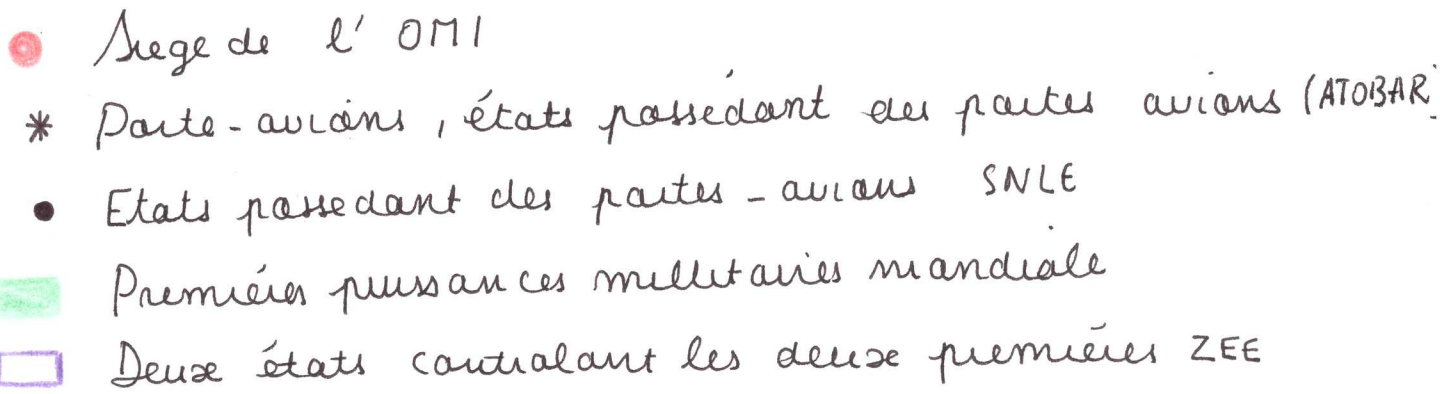 Siege de l' OMI
Porte-avions, états possédant des portes avions (ATOBAR)
Etats possedant des portes-avions SNLE
Premières puissances millitaires mondiale
Deux états controlant les deux premières ZEE